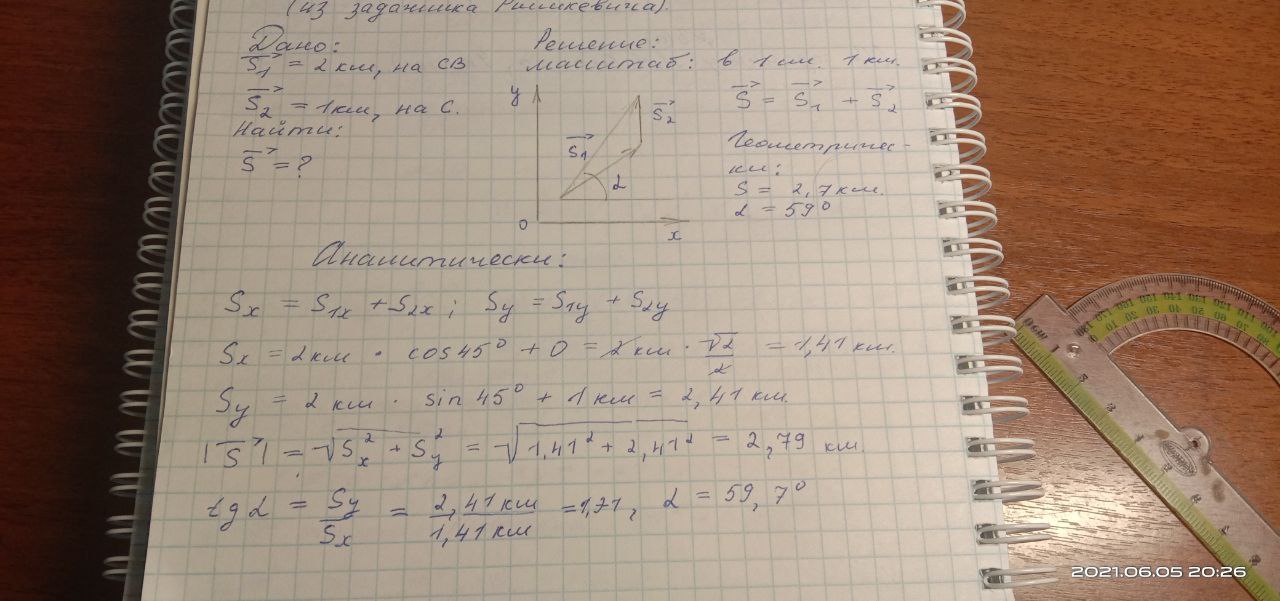 (из задачника Рымкевича).
Дано:
S₁ = 2 км, на СВ
S₂ = 1 км, на С.
Найти:
S = ?
Решение:
масштаб: в 1 см. 1 км.
S = S₁ + S₂
y
S₂
S₁
α
0
x
Геометричес-
ки:
S = 2,7 км.
α = 59°
Аналитически:
Sx = S₁x + S₂x ; Sy = S₁y + S₂y
Sx = 2 км · cos 45° + 0 = 2 км · √2/2 = 1,41 км.
Sy = 2 км · sin 45° + 1 км = 2,41 км.
|S| = √Sx² + Sy² = √1,41² + 2,41² = 2,79 км.
tg α = Sy/Sx = 2,41 км/1,41 км = 1,71, α = 59,7°
2021.06.05 20:26